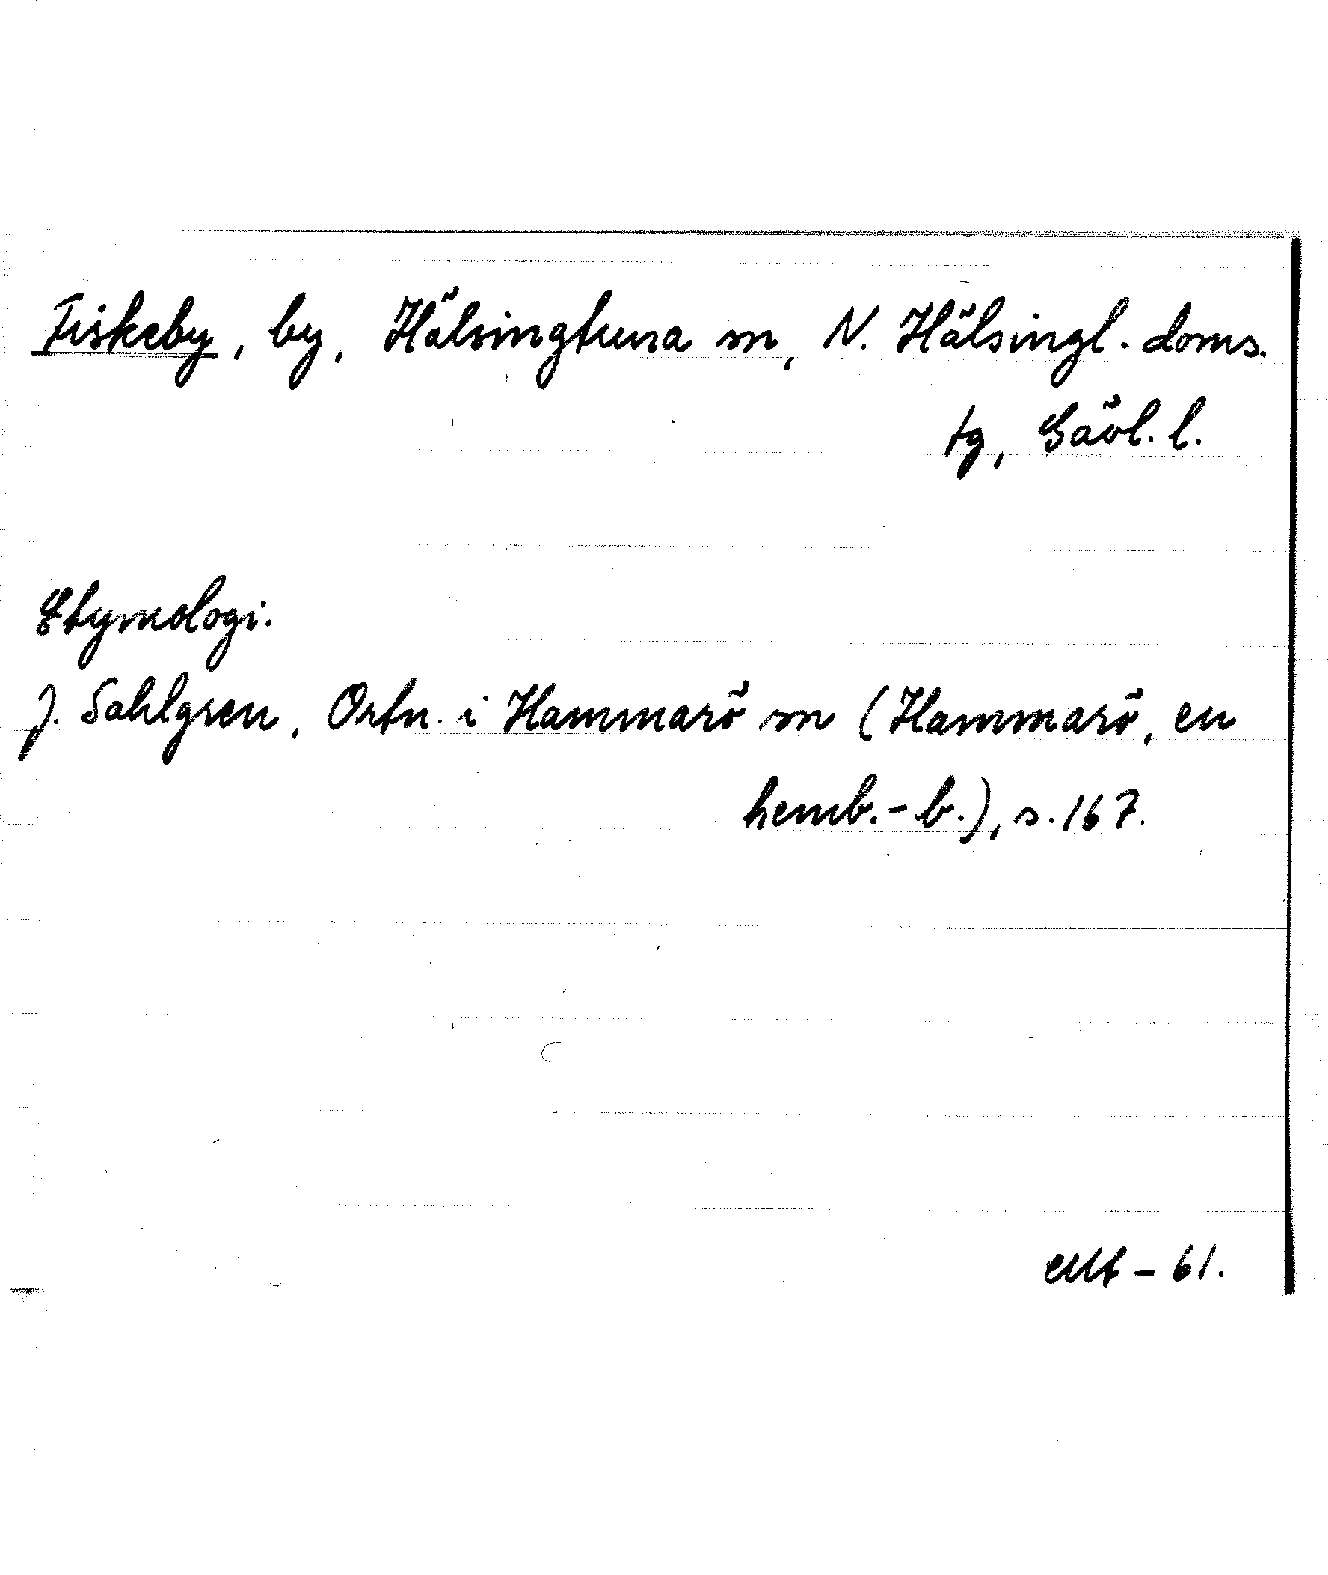 Fiskeby, by, Hälsingtuna sn, N. Hälsingl. doms.
tg, Gävl. l.
Etymologi.
J. Sahlgren, Ortn. i Hammarö sn (Hammarö, en
hemb.-b.), s. 167.
- 61.